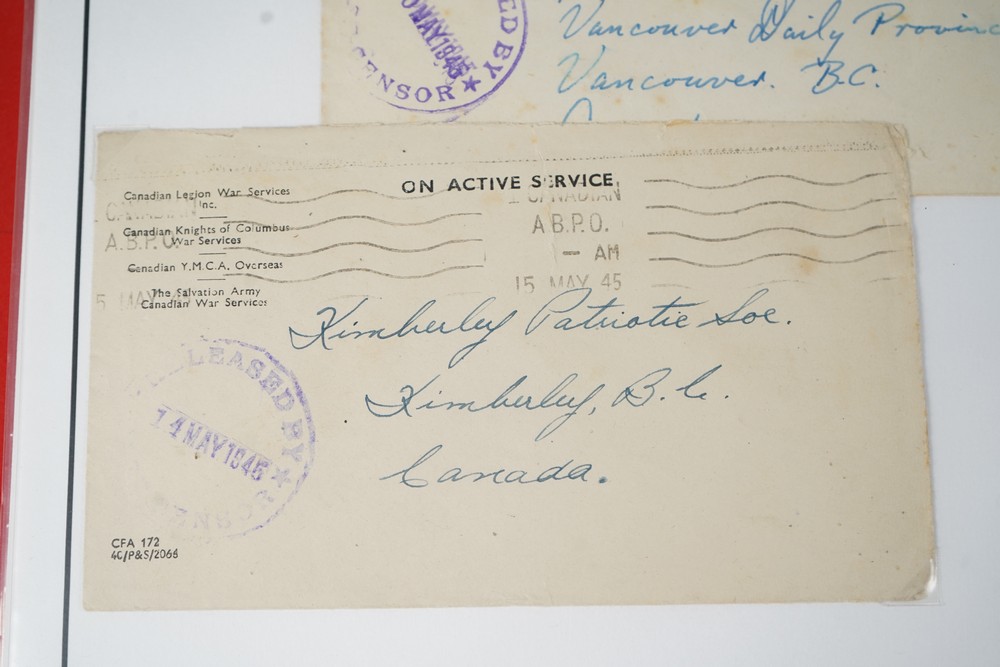 MAY 1945
ED BY ★
ENSOR
Vancouver Daily Provinc
Vancouver. B.C.
ON ACTIVE SERVICE
Canadian Legion War Services
Inc.
Canadian Knights of Columbus
War Services
Canadian Y.M.C.A. Overseas
The Salvation Army
Canadian War Services
CANADIAN
A.B.P.O.
5 MAY
CANADIAN
A.B.P.O.
— AM
15 MAY 45
Kimberley Patriotic Soc.
Kimberley, B.C.
Canada.
LEASED BY ★
14 MAY 1945
ENSOR
CFA 172
4C/P&S/2066